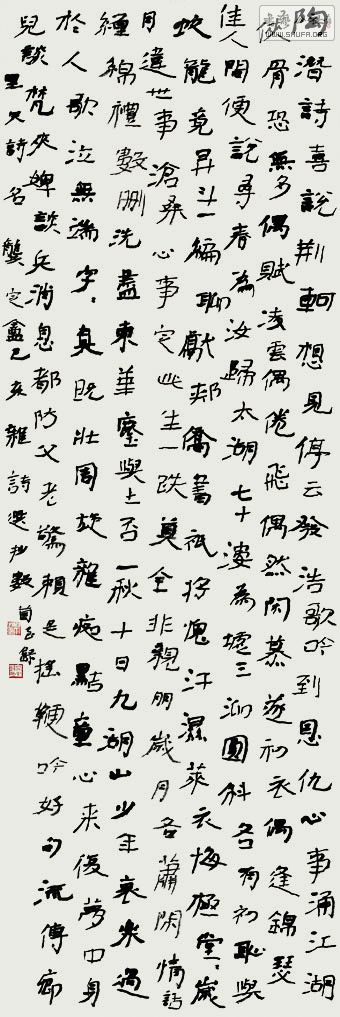 陶潛詩喜説荊軻想見停云發浩歌吟到恩仇心事涌江湖
俠骨恐無多偶賦凌雲偶倦飛偶然閑慕遂初衣偶逢錦瑟
佳人問便說尋春為汝歸太湖七十漊為墟三泖圓斜各有初恥與
蛟龍競昇斗一編聊獻郟僑書祇將愧汗濕萊衣悔極堂堂歲
月違世事滄桑心事定此生一跌莫全非親朋歲月各蕭閑情話
纏綿禮數刪洗盡東華塵與土否一秋十日九湖山少年哀樂過
於人歌泣無端字字真既壯周旋雜痴黠童心來復夢中身
兒談梵夾婢談兵消息都防父老驚賴是搖鞭吟好句流傳鄉
里只詩名 龔定盦己亥雜詩選抄數
WWW.SHUFA.ORG